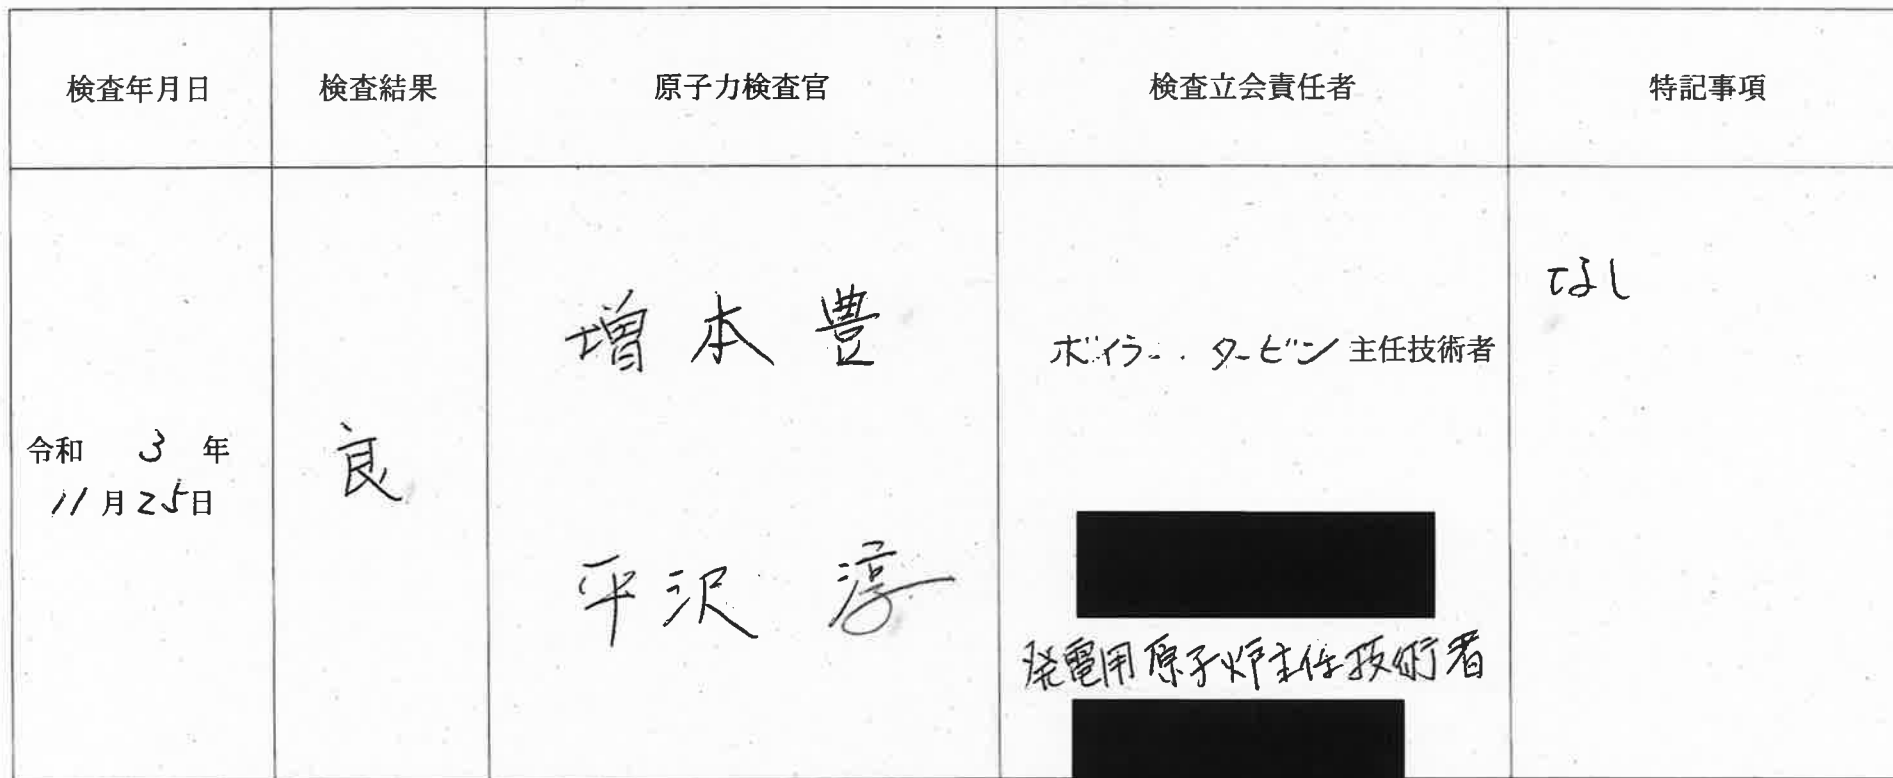 検査年月日 検査結果 原子力検査官 検査立会責任者 特記事項
令和 3 年
11月25日
良
増本 豊
平沢 淳
ボイラー・タービン主任技術者
発電用原子炉主任技術者
なし